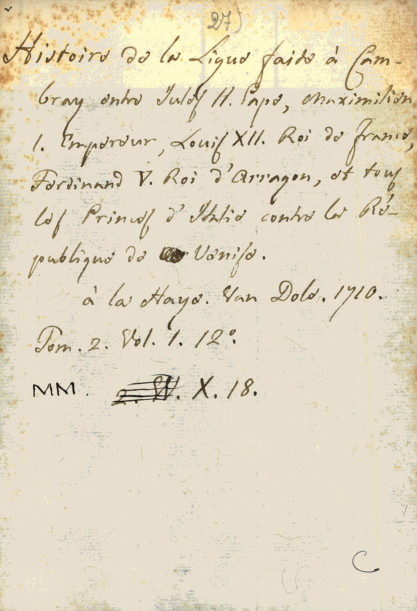 27)
Histoire de la Ligue faite à Cam-
bray entre Jules II. Pape, Maximilien
I. Empereur, Louis XII. Roi de france,
Ferdinand V. Roi d'Arragon, et tous
les Princes d'Italie contre la Ré-
publique de Venise.
à la Haye. Van Dole. 1710.
Tom. 2. Vol. 1. 12º.
MM. X. 18.
C